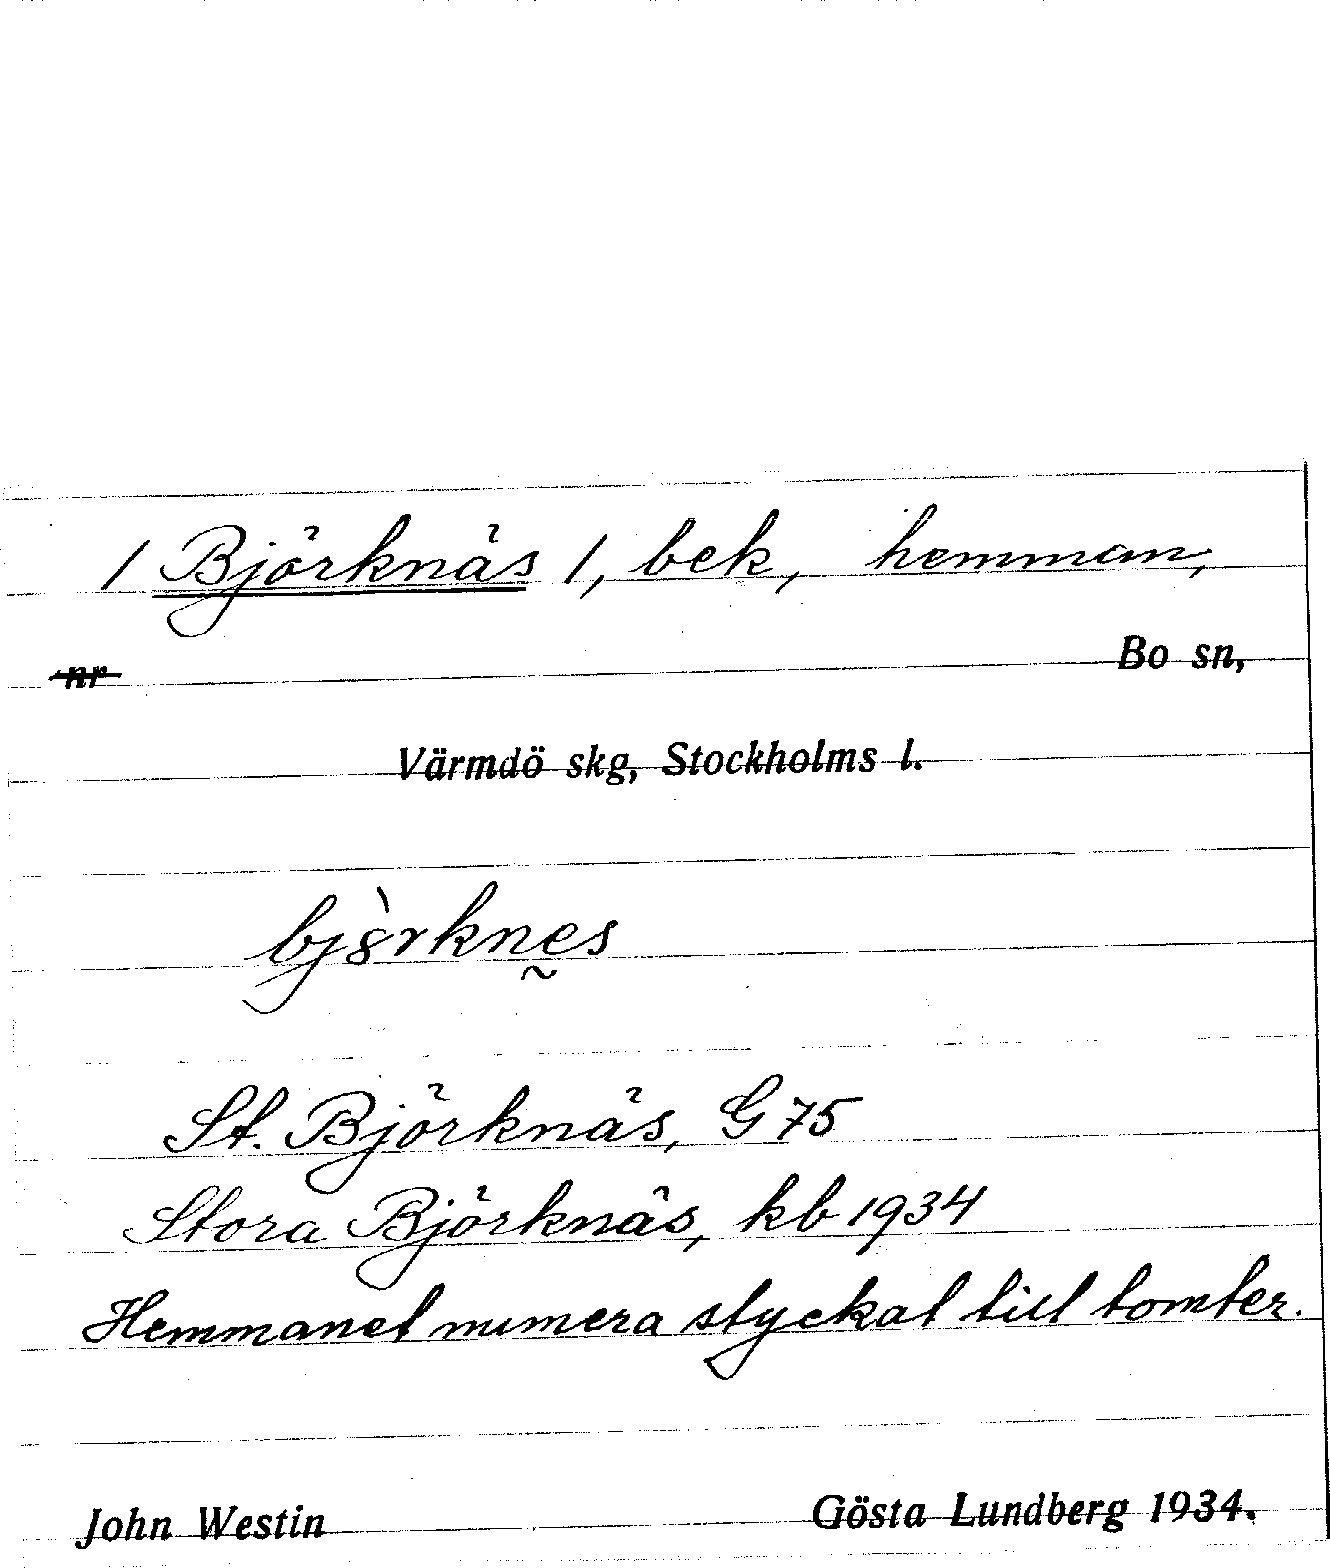 / Björknäs /, bek, hemman,
nr Bo sn,
Värmdö skg, Stockholms l.
bjö̀rknes
St. Björknäs, G 75
Stora Björknäs, kb 1934
Hemmanet numera styckat till tomter.
John Westin Gösta Lundberg 1934.